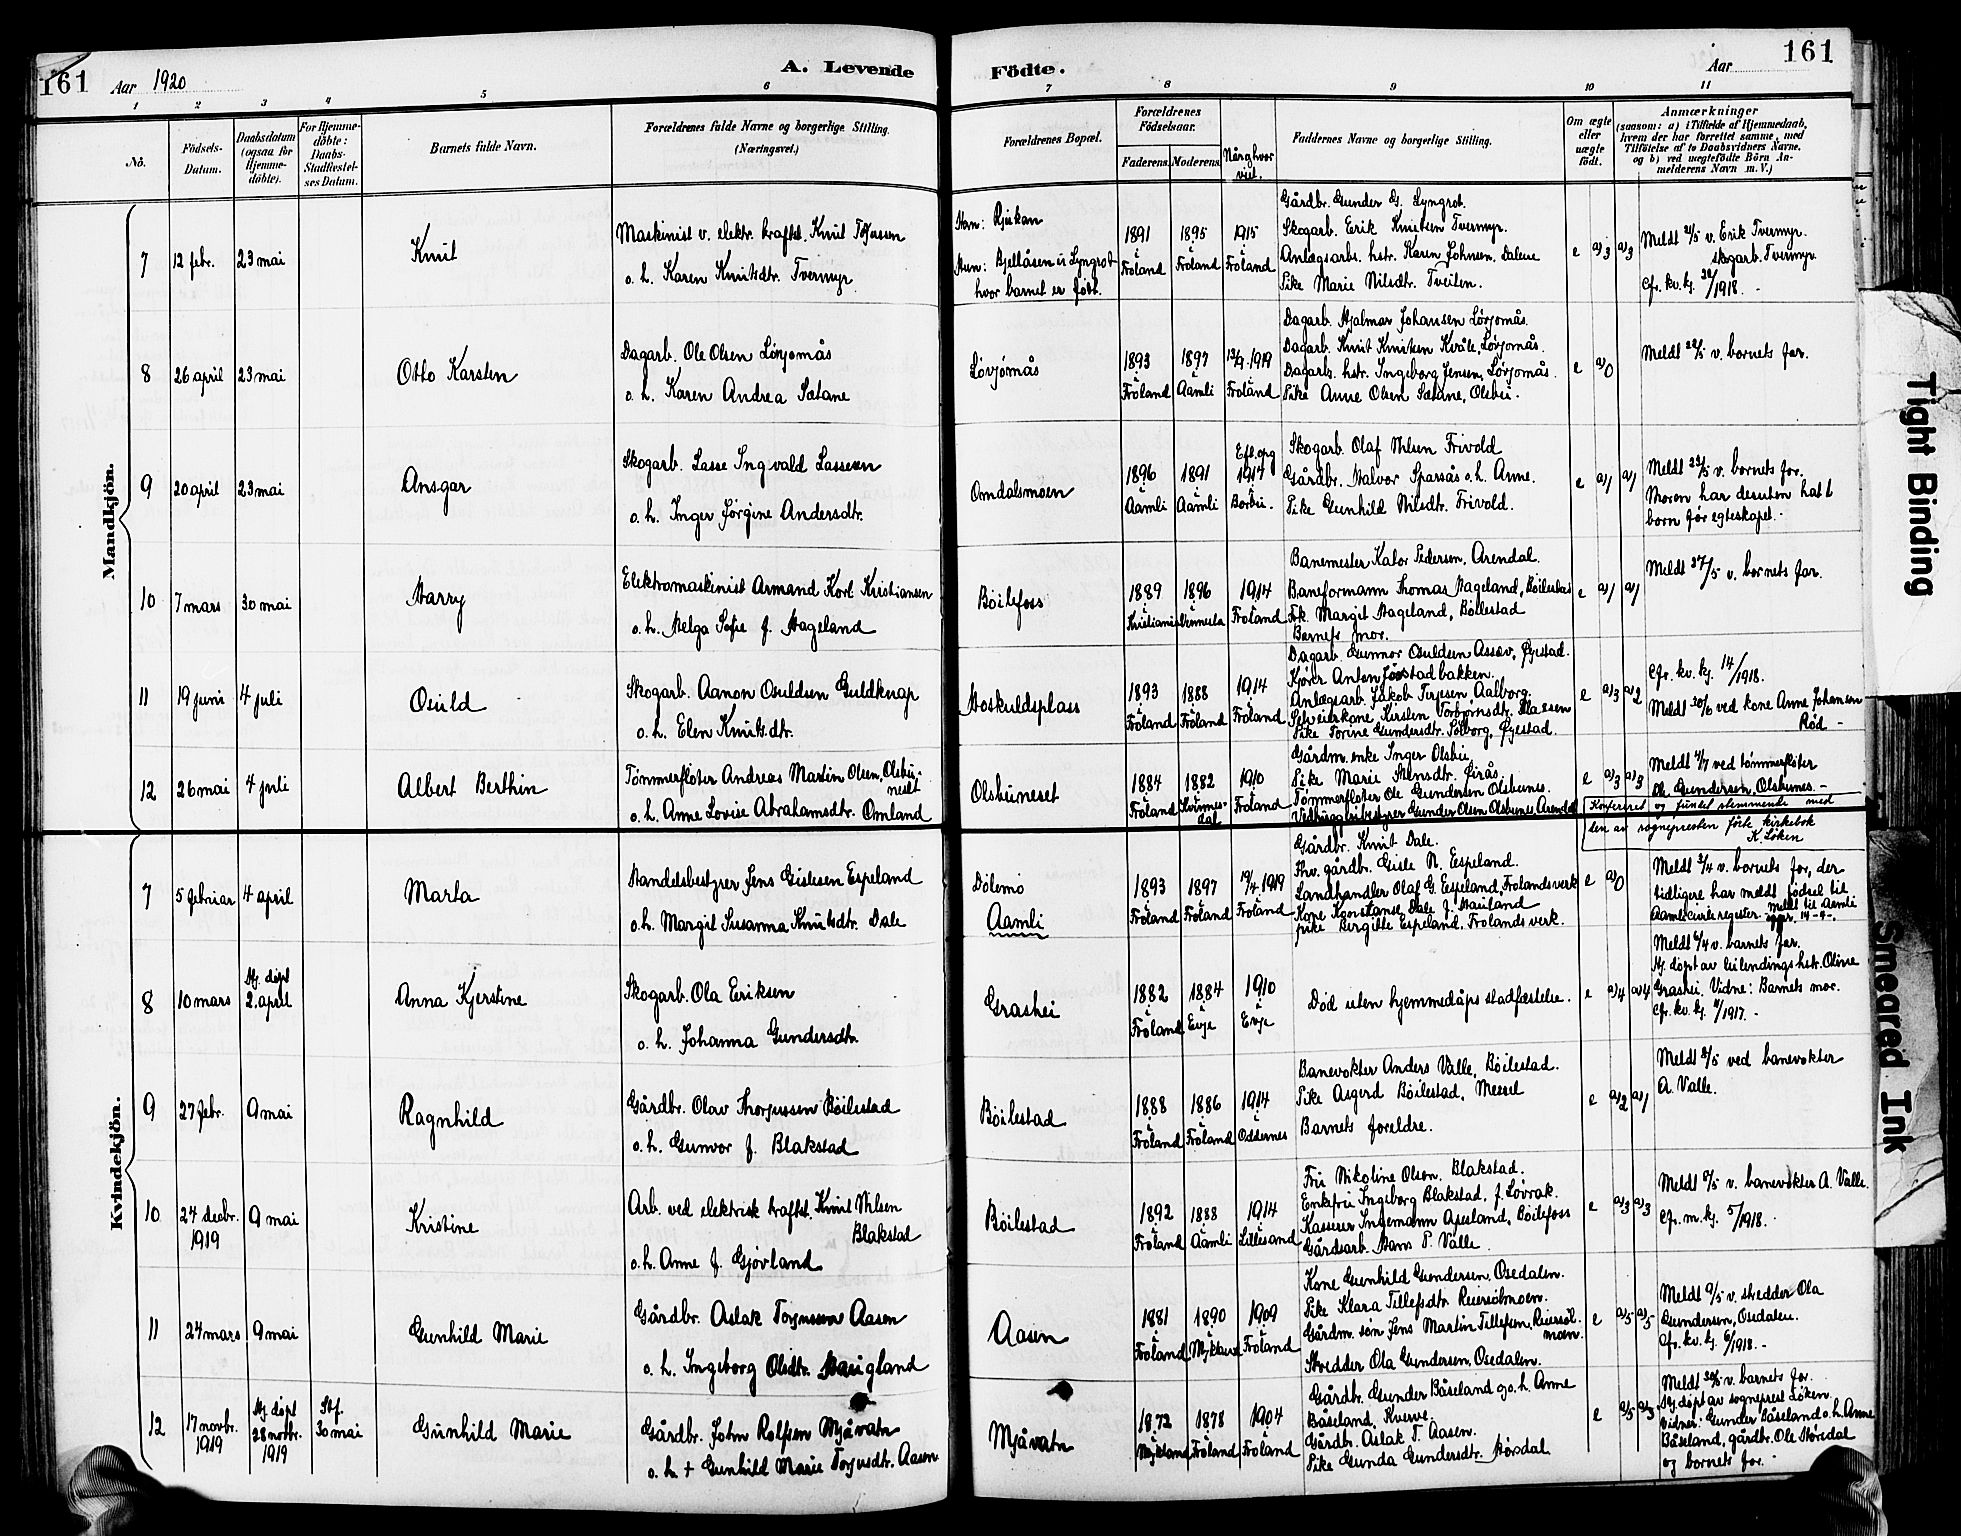 161
Aar 1920
A. Levende
Födte.
Aar
161
1 2 3 4 5 6 7 8 9 10 11
No.
Födsels-
Datum.
Daabsdatum
(ogsaa for
Hjemme-
döbte).
For Hjemme-
döbte:
Daabs-
Stadfæstel-
ses Datum.
Barnets fulde Navn.
Forældrenes fulde Navne og borgerlige Stilling.
(Næringsvei.)
Forældrenes Bopæl.
Forældrenes
Födselsaar.
Faderens.
Moderens.
Når og hvor
viet.
Faddernes Navne og borgerlige Stilling.
Om ægte
eller
uægte
födt.
Anmærkninger
(saasom: a) i Tilfælde af Hjemmedaab,
hvem der har forrettet samme, med
Tilföielse af to Daabsvidners Navne,
og b) ved uægtefödte Börn An-
melderens Navn m. V.)
Mandkjön.
7
12 febr.
23 mai
Knut
Maskinist v. elektr. kraftst. Knut Torjussen
o. h. Karen Knutsdtr. Tvermyr
Han: Rjukan
Hun: Bjellåsen u. Lyngrot
hvor barnet er født.
1891
Froland
1895
Froland
1915
Froland
Gårdbr. Gunder G. Lyngrot.
Skogarb. Erik Knutsen Tvermyr.
Anlægsarbs. hstr. Karen Johnsen, Dalene
Pike Marie Nilsdtr. Tveiten.
e a)3 a)3
Meldt 21/5 v. Erik Tvermyr.
skogarb. Tvermyr
Cfr. kv. kj. 32/1918. -
8
26 april
23 mai
Otto Karsten
Dagarb. Ole Olsen Løvjomås
o. h. Karen Andrea Sætane
Løvjomås
1893
Froland
1897
Aamli
13/9.1919
Froland
Dagarb. Hjalmar Johansen Løvjomås.
Dagarb. Knut Knutsen Kvåle, Løvjomås.
Dagarbs. hstr. Ingeborg Jensen, Løvjomås.
Pike Anne Olsen Sætane, Olsbu.
e a)0
Meldt 22/5 v. barnets far.
9
20 april
23 mai
Ansgar
Skogarb. Lasse Ingvald Lassesen
o. h. Inger Jørgine Andersdtr.
Omdalsmoen
1896
Aamli
1891
Aamli
Eft. org
1917
Borbu.
Skogarb. Olaf Nilsen Frivold
Gårdbr. Halvor Sparsås o. h. Anne.
Pike Gunhild Nilsdtr. Frivold.
e a)1 a)1
Meldt 23/5 v. barnets far.
Moren har desuten hat 1
barn før egteskapet.
10
7 mars
30 mai
Harry
Elektromaskinist Armand Karl Kristiansen
o. h. Helga Sofie f. Hageland
Bøilefoss
1889
Kristiania
1896
Vennesla
1914
Froland
Banemester Kalor Pedersen, Arendal.
Baneformann Thomas Hageland, Bøilestad
Frk. Margit Hageland, Bøilestad
Barnets mor.
e a)1 a)1
Meldt 27/5 v. barnets far.
11
19 juni
4 juli
Osuld
Skogarb. Aanon Osuldsen Guldknap
o. h. Elen Knutsdtr.
Hoskuldsplass
1893
Froland
1888
Froland
1914
Froland
Dagarb. Gunnar Osuldsen Assev, Øyestad.
Kjører Anton Jovstadbakken.
Anlægsarb. Jakob Terjesen Aalborg.
Selveierkone Kirsten Torbjørnsdtr. Klaasen
Pike Torine Gundersdtr. Solborg, Øyestad.
e a)3 a)2
Cfr. kv. kj. 14/1918.
Meldt 30/6 ved kone Anne Johansen
Rød -
12
26 mai
4 juli
Albert Berthin
Tømmerfløter Andreas Martin Olsen, Olsbu-
neset
o. h. Anne Lovise Abrahamsdtr. Omland
Olsbuneset
1884
Froland
1882
Kvinnes-
dal
1910
Froland
Gårdm. enke Inger Olsbu,
Pike Marie Stensdtr. Øirås,
Tømmerfløter Ole Gundersen Olsbunes.
Vedhuggerbestyrer Gunder Olsen Olsbunes, Arendal
e a)3 a)3
Meldt 4/7 ved tømmerfløter
Ole Gundersen, Olsbunes. -
Konferert og funnet stemmende med
den av sognepresten førte kirkebok
K. Løken
Kvindekjön.
7
5 februar
4 april
Marta
Handelsbestyrer Jens Gislesen Espeland
o. h. Margit Susanna Knutsdtr. Dale
Dølemo
Aamli
1893
Froland
1897
Froland
19/4.1919
Froland
Gårdbr. Knut Dale.
Fhv. gårdbr. Gisle N. Espeland.
Landhandler Olaf G. Espeland, Frolandsverk
Kone Konstanse Dale f. Hauiland
pike Birgitte Espeland, Frolands verk.
e a)0
Meldt 3/4 v. barnets far, der
tidligere har meldt fødsel til
Aamli civile register. Meldt til Aamli
14-4-.
8
10 mars
Hj. døpt
2. april
Anna Kjerstine
Skogarb. Ola Eriksen
o. h. Johanna Gundersdtr.
Grashei
1882
Froland
1884
Evje
1910
Evje
Død uten hjemmedåps stadfæstelse.
e a)4 a)4
Meldt 6/4 v. barnets far.
Hj. døpt av leilendings hstr. Oline
Grashei. Vidne: Barnets mor.
Cfr. kv. kj. 4/1917. -
9
27 febr.
9 mai
Ragnhild
Gårdbr. Olav Thorjussen Bøilestad
o. h. Gunvor f. Blakstad
Bøilestad
1888
Froland
1886
Froland
1914
Oddernes
Banevokter Anders Valle, Bøilestad.
Pike Asgerd Bøilestad, Messel
Barnets foreldre.
e a)2 a)1
Meldt 8/5 ved banevokter
A. Valle.
10
24 decbr.
1919
9 mai
Kristine
Arb. ved elektrisk kraftst. Knut Nilsen
Blakstad
o. h. Anne f. Gjovland
Bøilestad
1892
Froland
1888
Aamli
1914
Lillesand
Fru Nikoline Olsen, Blakstad.
Enkefru Ingeborg Blakstad, f. Løvrak.
Kasserer Ingemann Apesland, Bøilefoss
Gårdsarb. Hans P. Valle
e a)3 a)3
Meldt 8/5 v. banevokter A. Valle.
Cfr. m. kj. 5/1918. -
11
24 mars
9 mai
Gunhild Marie
Gårdbr. Aslak Torjussen Aasen
o. h. Ingeborg Olsdtr. Haugland
Aasen
1881
Froland
1890
Mykland
1909
Froland
Kone Gunhild Gundersen, Osedalen.
Pike Klara Tellefsdtr. Reiersølmoen.
Gårdm. søn Jens Martin Tellefsen, Reiersøl-
moen.
Skredder Ola Gundersen, Osedalen.
e a)5 a)5
Meldt 9/5 v. skredder Ola
Gundersen, Osedalen.
Cfr. kv. kj. 6/1918. -
12
17 novbr.
1919
Hj. døpt
28 novbr.
1919
Stf.
30 mai
Gunhild Marie
Gårdbr. John Rolfsen Mjåvatn
o. h. + Gunhild Marie Torjusdtr. Aasen
Mjåvatn
1872
Mykland
1878
Froland
1904
Froland
Gårdbr. Gunder Båseland og o. h. Anne
Båseland, Kverve.
Gårdbr. Aslak T. Aasen.
Pike Gunda Gundersdtr. Hørsdal
e a)5 a)3
Meldt 30/5 v. barnets far.
Hj. døpt av sogneprest Løken.
Vidner: Gunder Båseland o. h. Anne
Båseland, gårdbr. Ole Støredal
og barnets far. -
Tight Binding
Smeared Ink